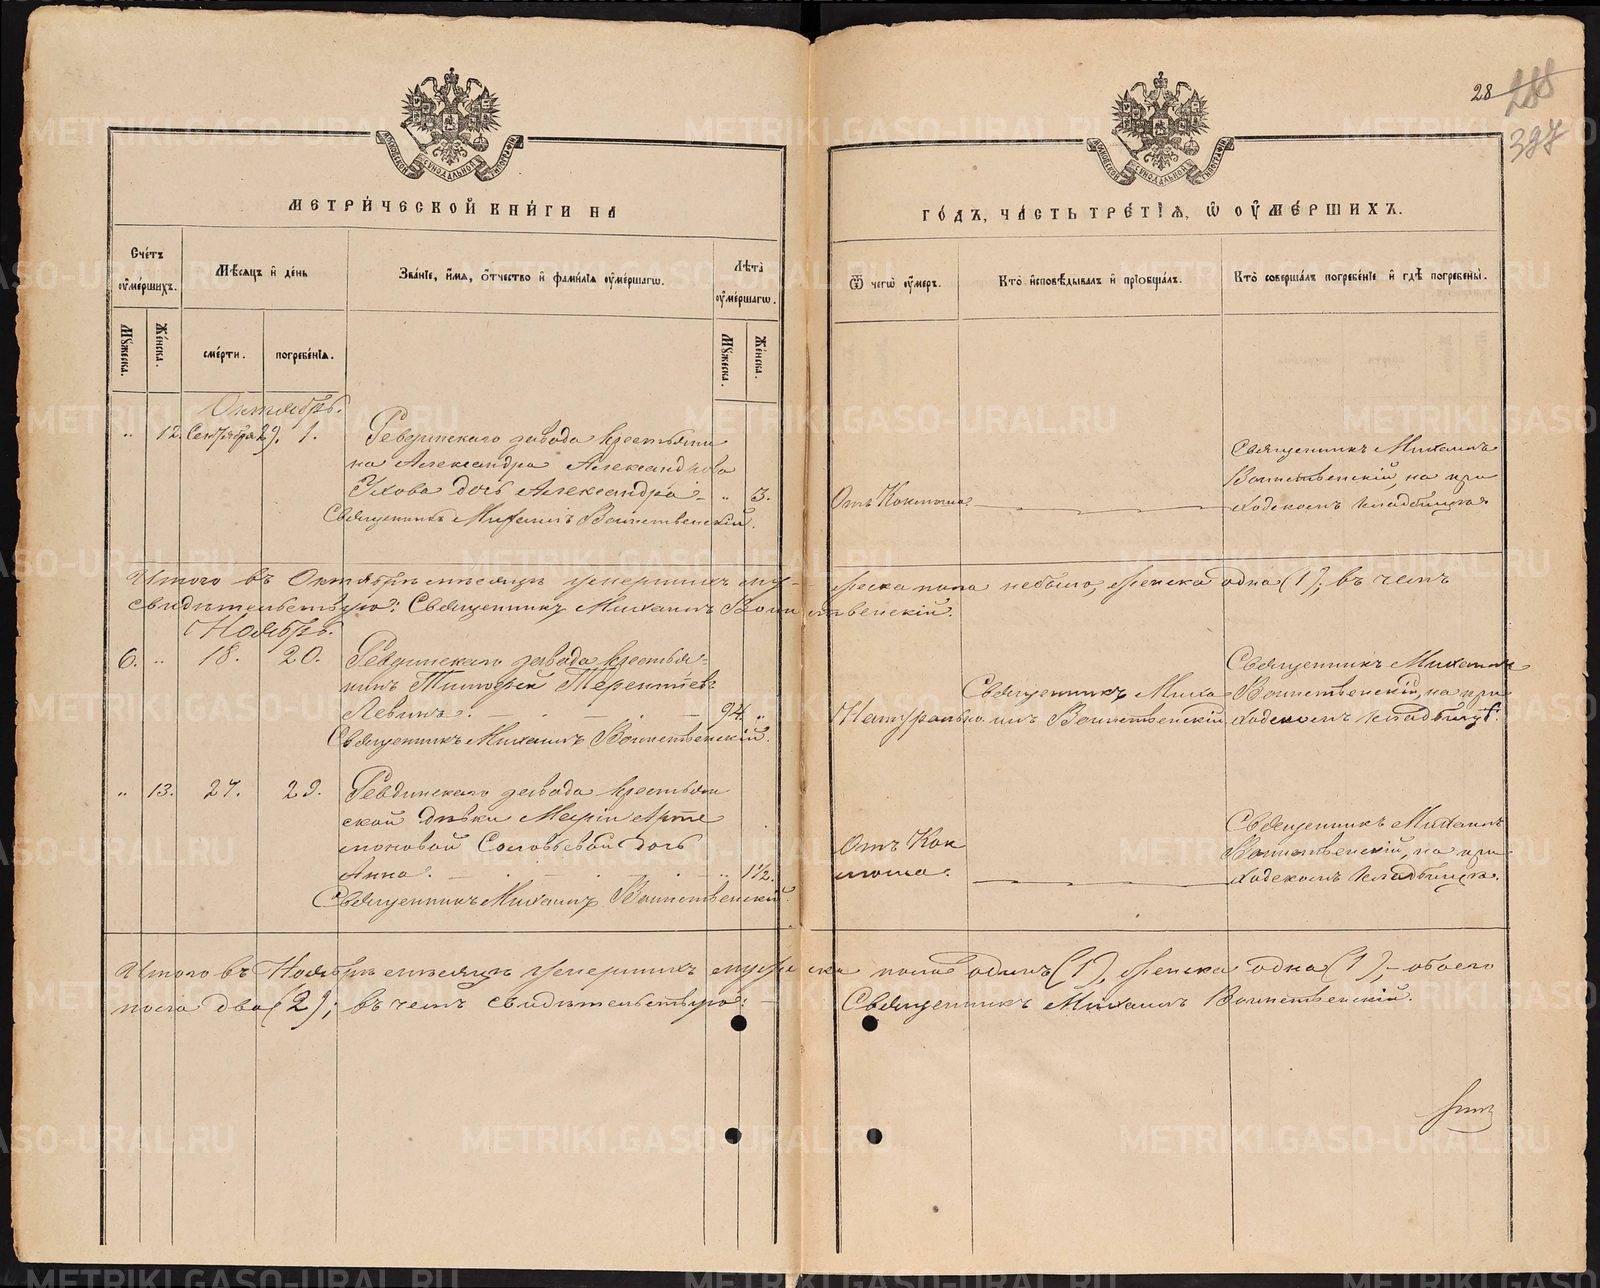 28
288
397
МЕТРИ́ЧЕСКОЙ КНИ́ГИ НА
ГО́ДЪ, ЧА́СТЬ ТРЕ́ТІЯ, Ѡ ОУМЕ́РШИХЪ.
Сче́тъ оуме́ршихъ.
Мꙋжеска.
Же́нска.
Мѣсяцъ и де́нь
сме́рти.
погребе́нїя.
Зва́нїе, и́мя, о́тчество и фами́лїя оуме́ршагѡ.
Лѣта̀ оуме́ршагѡ.
Мꙋжеска.
Же́нска.
Ѿ чегѡ̀ оу́меръ.
Кто̀ исповѣ́дывалъ и прїобща́лъ.
Кто̀ соверша́лъ погребе́нїе и гдѣ̀ погребены̀.
Октябрь.
" 12. Сентября 29. 1.
Ревдинскаго завода крестьяни
на Александра Александрова
Ухова дочь Александра - " 3.
Священникъ Михаилъ Воинственскій.
Отъ Коклюша.
Священникъ Михаилъ
Воинственскій на при
ходскомъ кладбищѣ.
Итого въ Октябрѣ мѣсяцѣ умершихъ му- жеска пола небыло, женска одна (1); въ чемъ
свидѣтельствую: Священникъ Михаилъ Воинственскій.
Ноябрь.
6. " 18. 20.
Ревдинскаго завода крестья-
нинъ Тимофей Терентіевъ
Левинъ. 94. "
Священникъ Михаилъ Воинственскій.
Натурально
Священникъ Миха
илъ Воинственскій
Священникъ Михаилъ
Воинственскій, на при
ходскомъ кладбищѣ.
" 13. 27. 29.
Ревдинскаго завода крестьян
ской дѣвки Маріи Арте
моновой Соловьевой дочь
Анна. " 1½.
Священникъ Михаилъ Воинственскій.
Отъ Кок
люша.
Священникъ Михаилъ
Воинственскій, на при
ходскомъ кладбищѣ.
Итого въ Ноябрѣ мѣсяцѣ умершихъ мужеска пола одинъ (1), женска одна (1), - обоего
пола два (2); въ чемъ свидѣтельствую: - Священникъ Михаилъ Воинственскій.
METRIKI.GASO-URAL.RU